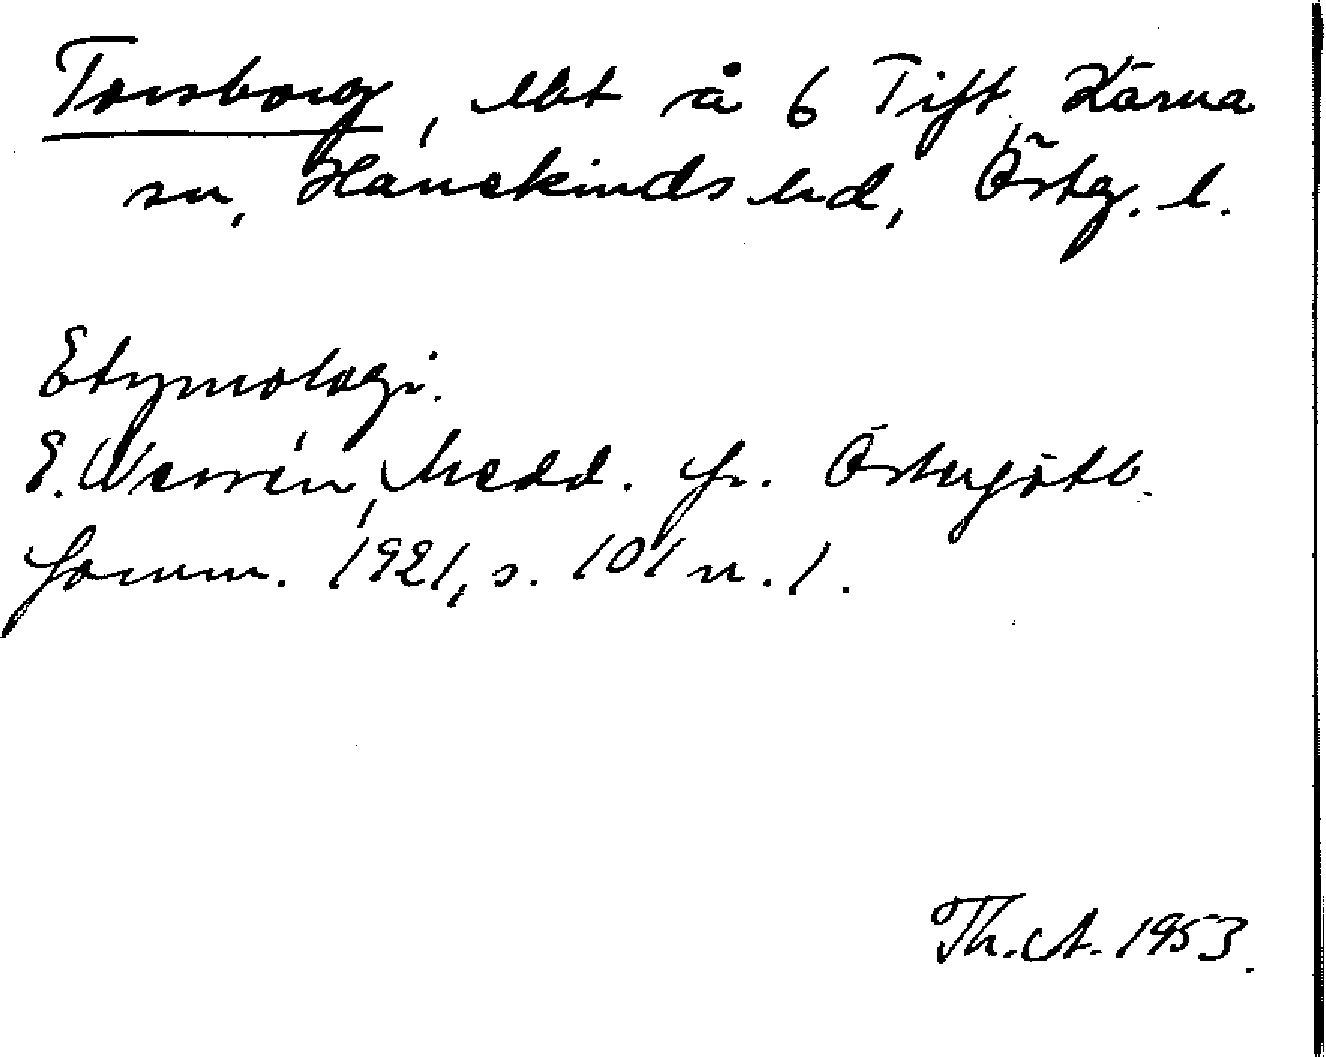 Torsborg, lht å 6 Tift, Kärna
sn, Hanekinds hd, Östg. l.
Etymologi.
E. Wessén, Medd. fr. Östergötl.
fornm. 1921, s. 101 n. 1.
Th. A. 1953.